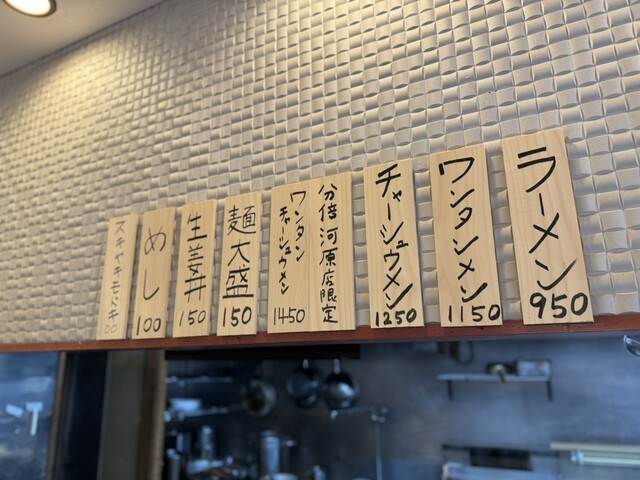 ラーメン
950
ワンタンメン
1150
チャーシュウメン
1250
分倍河原店限定
ワンタン
チャーシュウメン
1450
麺大盛
150
生姜丼
150
めし
100
スキヤキモドキ